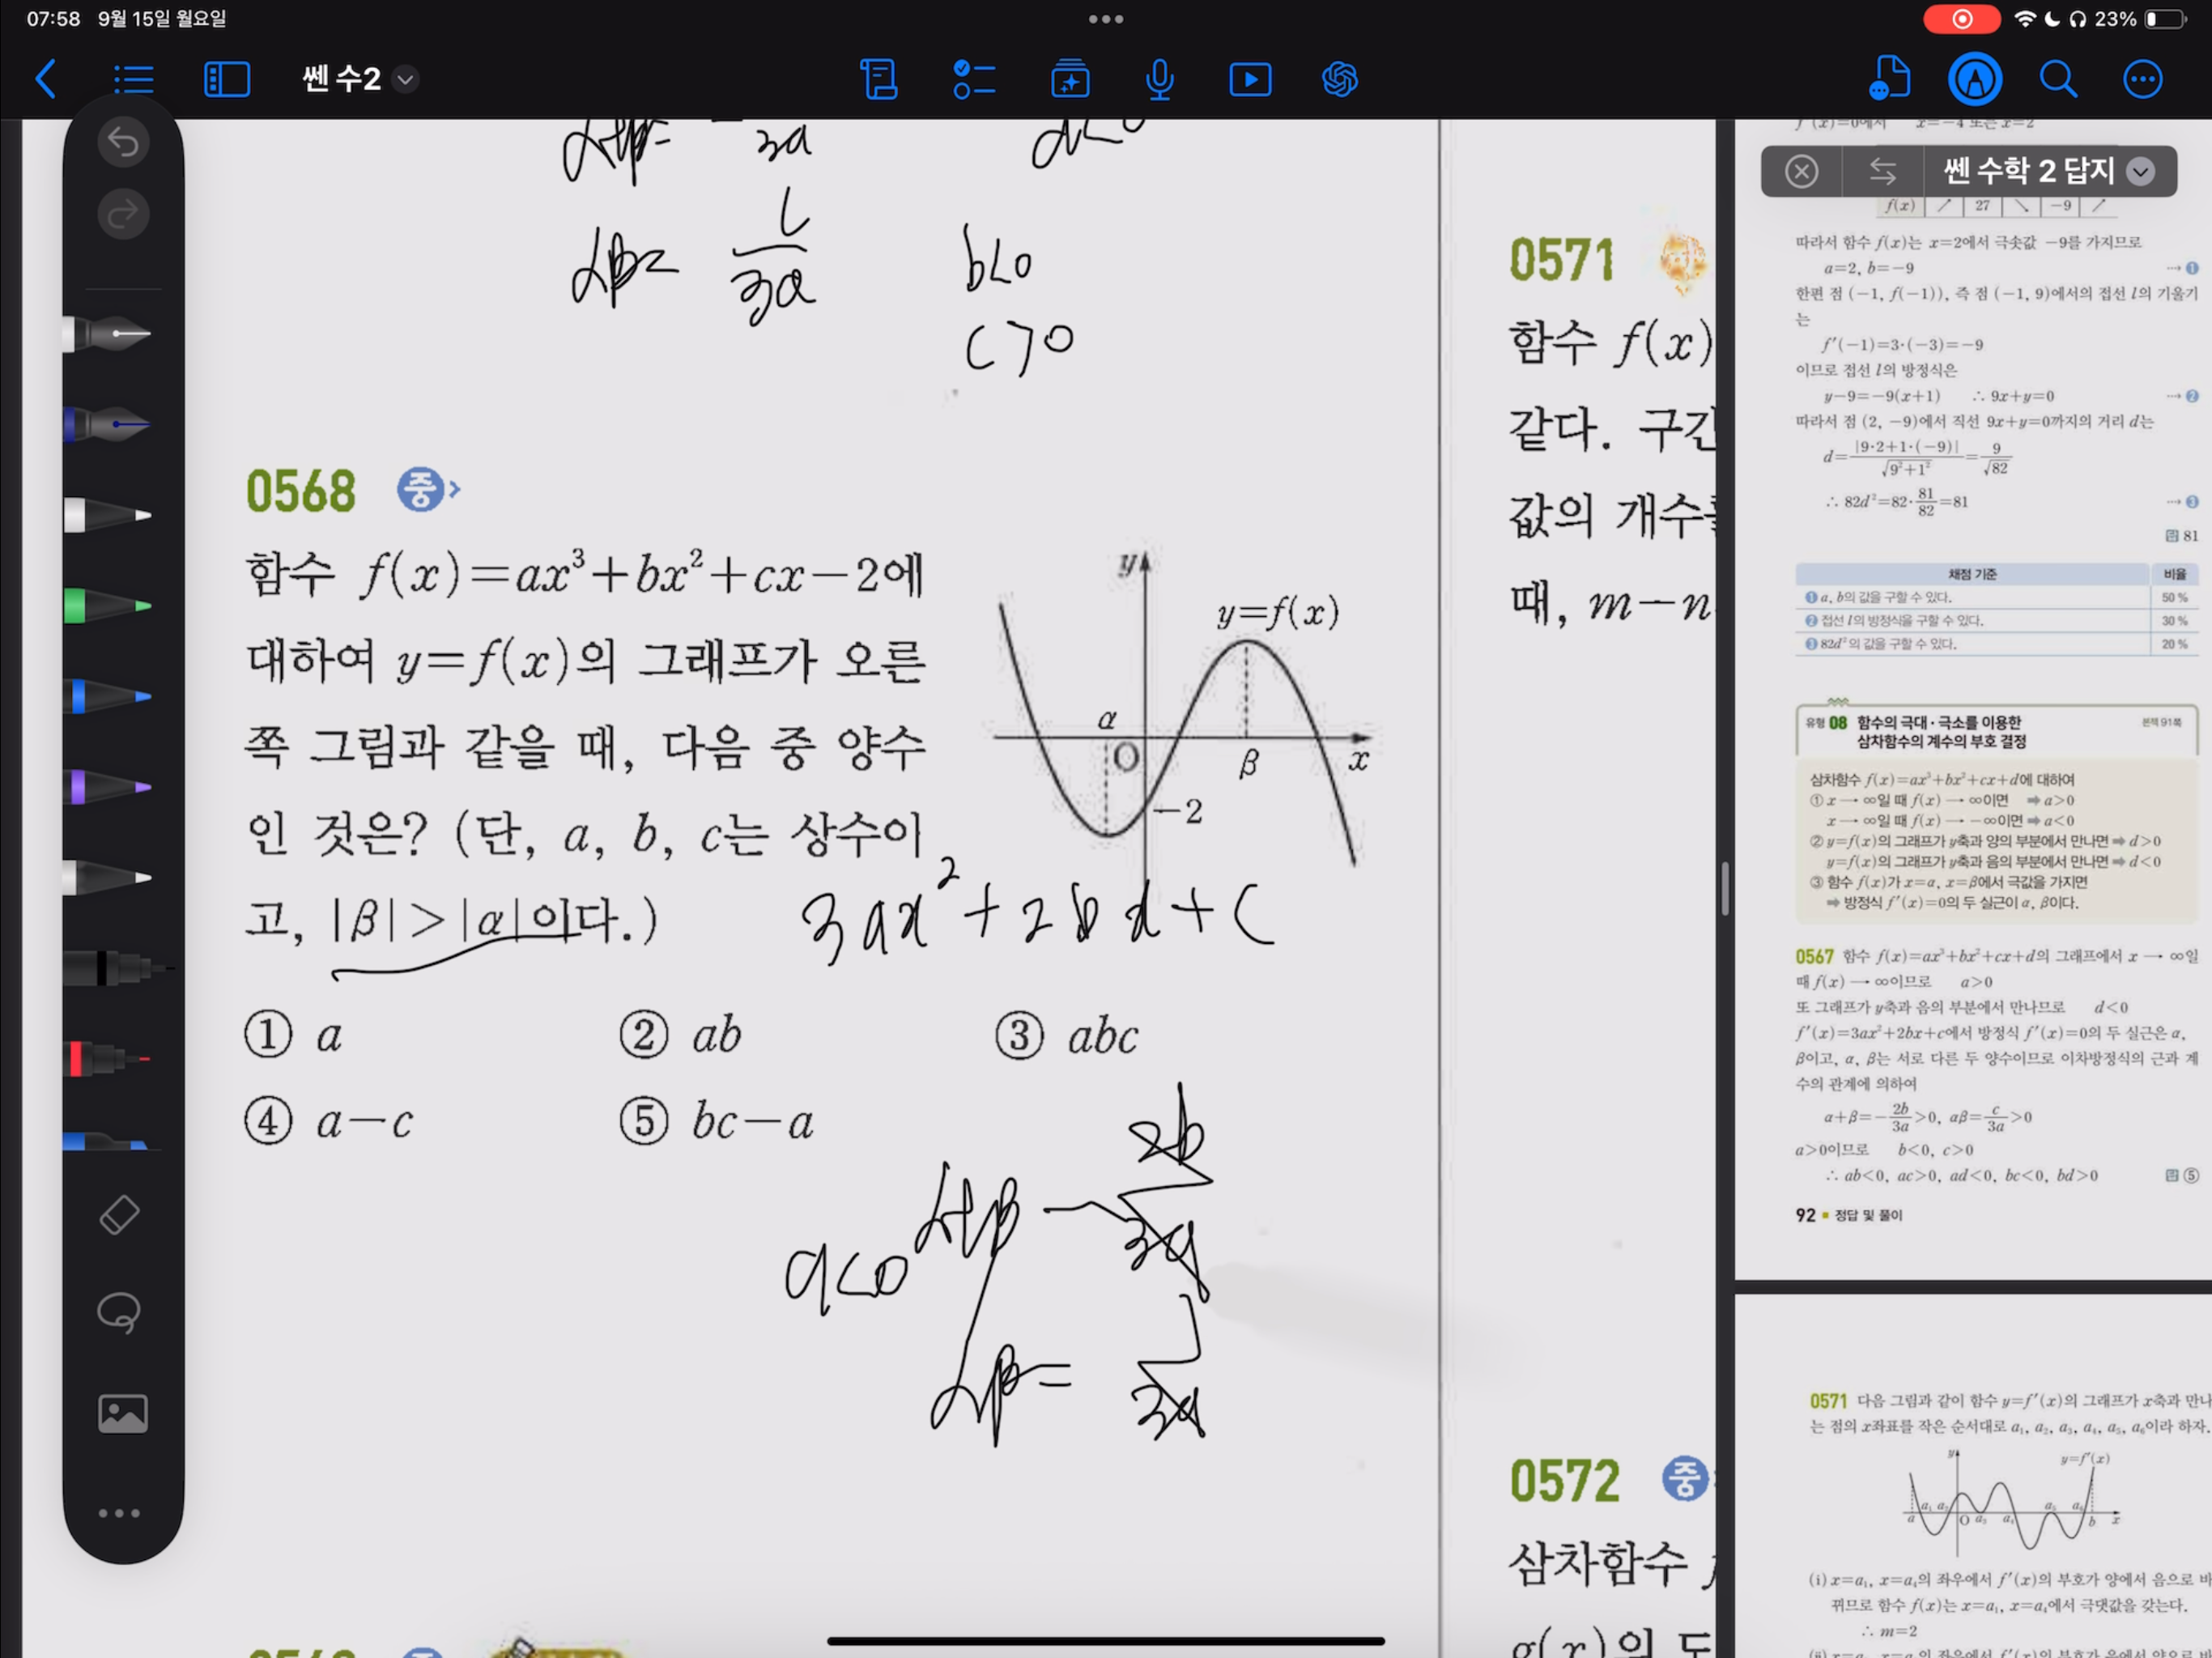 07:58 9월 15일 월요일
23%
쎈 수2
쎈 수학 2 답지
α+β= -
3a
a<0
αβ= c/3a
b<0
c>0
0568 중
함수 f(x)=ax³+bx²+cx-2에
대하여 y=f(x)의 그래프가 오른
쪽 그림과 같을 때, 다음 중 양수
인 것은? (단, a, b, c는 상수이
고, |β|>|α|이다.)
y
y=f(x)
α
O
β
x
-2
3ax²+2bx+c
① a
② ab
③ abc
④ a-c
⑤ bc-a
a<0
α+β - 2b/3a
αβ= /3a
0571
함수 f(x)
같다. 구간
값의 개수를
때, m-n
0572 중
삼차함수
g(x)의 도
f'(x)=0에서 x=-4 또는 x=2
f(x) ↗ 27 ↘ -9 ↗
따라서 함수 f(x)는 x=2에서 극솟값 -9를 가지므로
a=2, b=-9 ⋯→ ❶
한편 점 (-1, f(-1)), 즉 점 (-1, 9)에서의 접선 l의 기울기
는
f'(-1)=3·(-3)=-9
이므로 접선 l의 방정식은
y-9=-9(x+1) ∴ 9x+y=0 ⋯→ ❷
따라서 점 (2, -9)에서 직선 9x+y=0까지의 거리 d는
d=|9·2+1·(-9)|/√(9²+1²)=9/√82
∴ 82d²=82·81/82=81 ⋯→ ❸
답 81
채점 기준 비율
❶ a, b의 값을 구할 수 있다. 50 %
❷ 접선 l의 방정식을 구할 수 있다. 30 %
❸ 82d²의 값을 구할 수 있다. 20 %
유형 08 함수의 극대·극소를 이용한 본책 91쪽
삼차함수의 계수의 부호 결정
삼차함수 f(x)=ax³+bx²+cx+d에 대하여
① x → ∞일 때 f(x) → ∞이면 ➡ a>0
x → ∞일 때 f(x) → -∞이면 ➡ a<0
② y=f(x)의 그래프가 y축과 양의 부분에서 만나면 ➡ d>0
y=f(x)의 그래프가 y축과 음의 부분에서 만나면 ➡ d<0
③ 함수 f(x)가 x=α, x=β에서 극값을 가지면
➡ 방정식 f'(x)=0의 두 실근이 α, β이다.
0567 함수 f(x)=ax³+bx²+cx+d의 그래프에서 x → ∞일
때 f(x) → ∞이므로 a>0
또 그래프가 y축과 음의 부분에서 만나므로 d<0
f'(x)=3ax²+2bx+c에서 방정식 f'(x)=0의 두 실근은 α,
β이고, α, β는 서로 다른 두 양수이므로 이차방정식의 근과 계
수의 관계에 의하여
α+β=-2b/3a>0, αβ=c/3a>0
a>0이므로 b<0, c>0
∴ ab<0, ac>0, ad<0, bc<0, bd>0 답 ⑤
92 ■ 정답 및 풀이
0571 다음 그림과 같이 함수 y=f'(x)의 그래프가 x축과 만나
는 점의 x좌표를 작은 순서대로 a₁, a₂, a₃, a₄, a₅, a₆이라 하자.
y
y=f'(x)
a a₁ a₂ O a₃ a₄ a₅ a₆ b x
(i) x=a₁, x=a₄의 좌우에서 f'(x)의 부호가 양에서 음으로 바
뀌므로 함수 f(x)는 x=a₁, x=a₄에서 극댓값을 갖는다.
∴ m=2